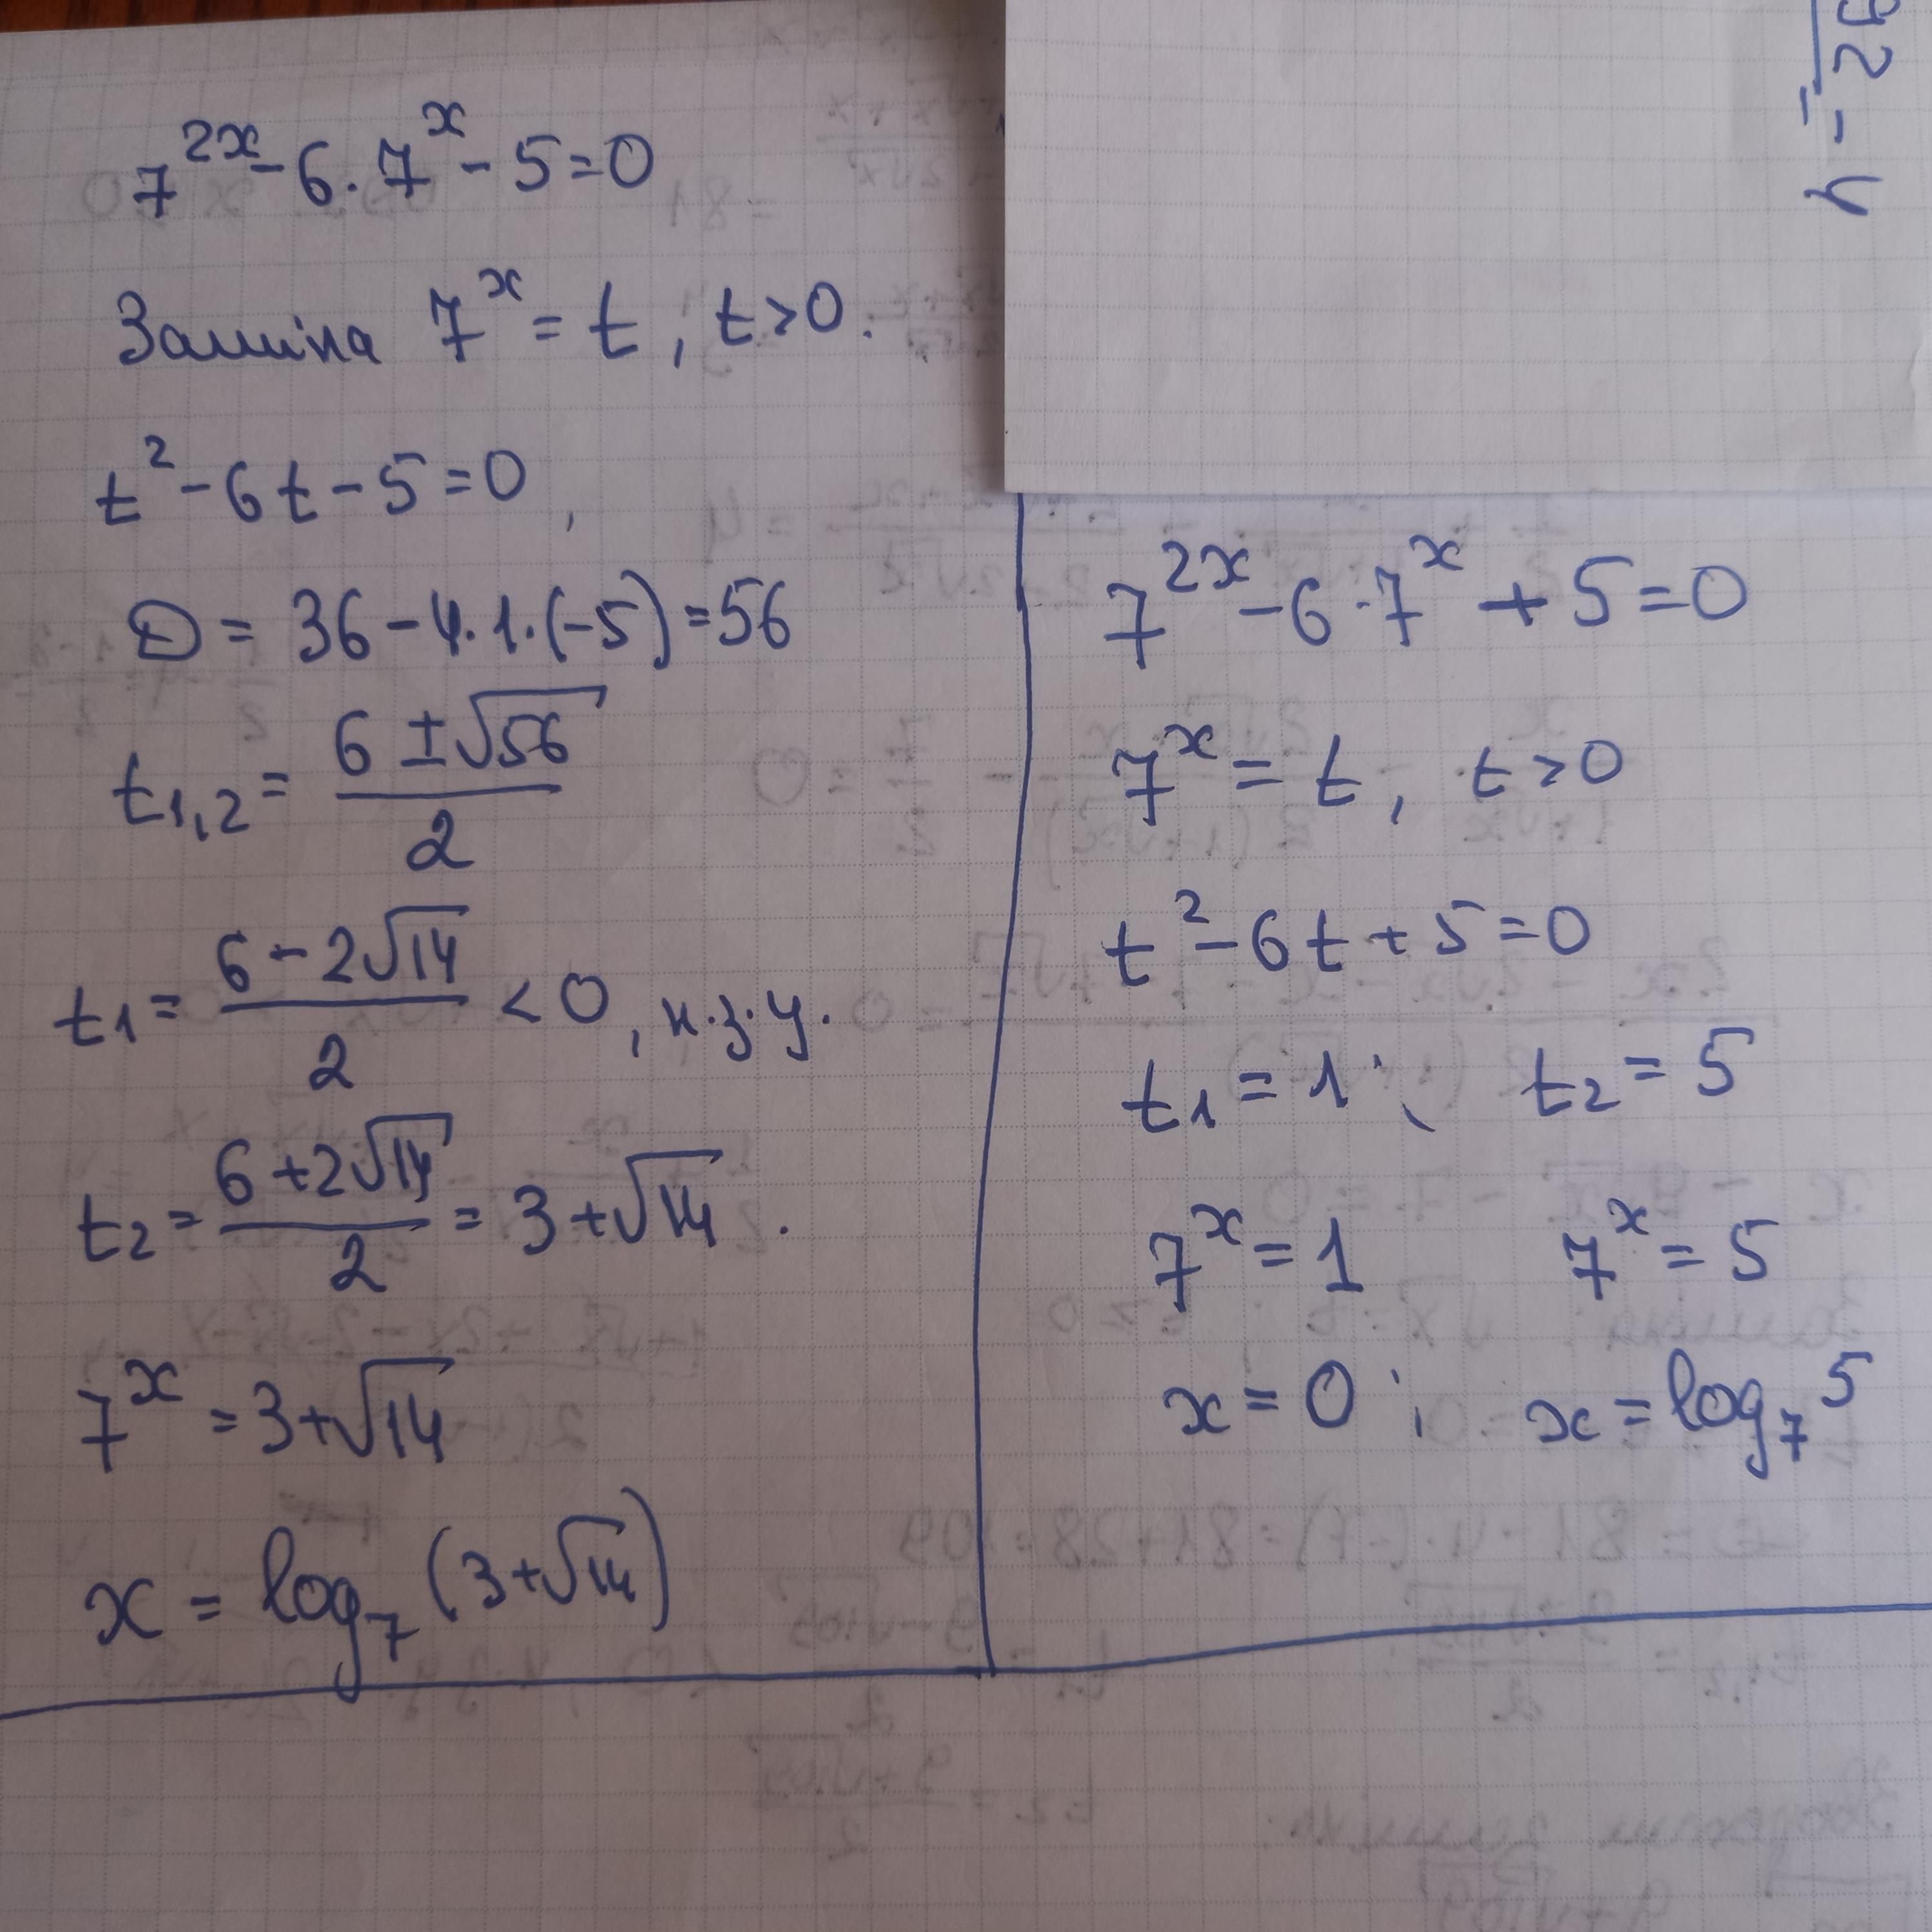 7^{2x} - 6 · 7^x - 5 = 0
Заміна 7^x = t, t > 0.
t² - 6t - 5 = 0,
D = 36 - 4·1·(-5) = 56
t_{1,2} = \frac{6 ± √56}{2}
t_1 = \frac{6 - 2√14}{2} < 0, н.з.у.
t_2 = \frac{6 + 2√14}{2} = 3 + √14.
7^x = 3 + √14
x = log_7 (3 + √14)
7^{2x} - 6 · 7^x + 5 = 0
7^x = t, t > 0
t² - 6t + 5 = 0
t_1 = 1; t_2 = 5
7^x = 1 7^x = 5
x = 0; x = log_7 5